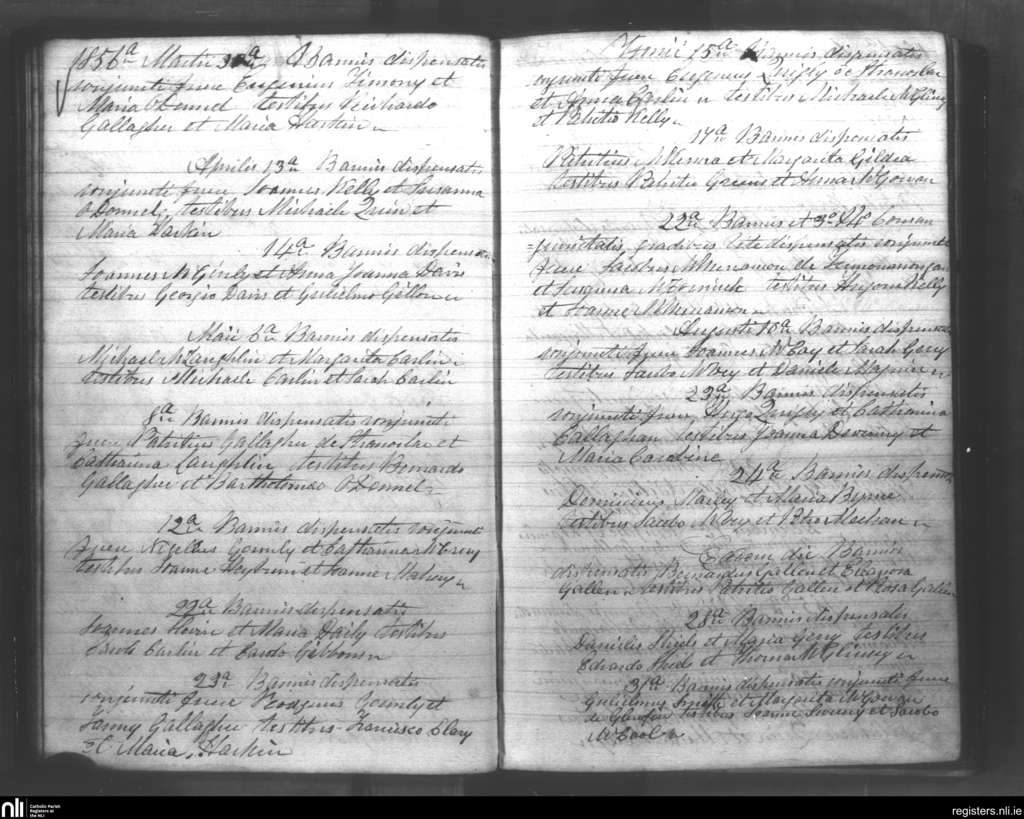 1856 a Martii 30a Bannis dispensatis
conjuncti fuere Eugenius Timony et
Maria O Donnel testibus Reichardo
Gallagher et Maria Harkin
Aprilis 13a Bannis dispensatis
conjuncti fuere Joannes Kelly et Susanna
O Donnel, testibus Michaele Quin et
Maria Harkin
14a Bannis dispensa
Joannes McGinly et Anna Joanna Davis
testibus Georgio Davis et Gulielmo
Maii 6a Bannis dispensatis
Michael McLaughlin et Margarita Carlin
testibus Michaele Carlin et Sarah Carlin
8a Bannis dispensatis conjuncti
fuere Patritius Gallagher de Stranorlar et
Catharina Laughlin, testibus Bernardo
Gallagher et Bartholomeo O Donnel
12a Bannis dispensatis conjunct
fuere et Catharina McCrory
testibus Joanne et Joanne
22a Bannis dispensatis
Joannes et Maria Daily testibus
Jacobo Carlin et Jacobo Gibbons
23a Bannis dispensatis
conjuncti fuere et
Fanny Gallagher testibus Francisco Clary
et Maria Harkin
Junii 15a Bannis dispensatis
conjuncti fuere Eugenius Quigly de Stranorlar
et Anna Carlin testibus Michaele McGliny
et Patritio Kelly
17a Bannis dispensatis
Patritius et Margarita Gildea
testibus Patritio et Anna McGowan
22a Bannis et 3o 4o Consan
=guinitatis gradibus rite dispensatis conjuncti
fuere Jacobus McMenamon de
et Susanna McCormick testibus Kelly
et Joanne McMenamon
Augusti 10a Bannis dispensat
conjuncti fuere Joannes McCoy et Sarah Gery
testibus Jacobo et Daniele
23a Bannis dispensatis
conjuncti fuere Quigly et Catharina
Callaghan testibus Joanna Devenny et
Maria
24a Bannis dispensat
et Maria Byrne
testibus Jacobo et Petro Meehan
Eadem die Bannis
dispensatis Bernardus Gallen et Eleanora
Gallen testibus Patritio Gallen et Rosa Gallen
28a Bannis dispensatis
Danielis Shiels et Maria Gery testibus
Edvardo Shiels et Thoma McGlinsy
31a Bannis dispensatis conjuncti fuere
Gulielmus et Margarita McGowan
de testibus Joanne et Jacobo
McCool
nli
Catholic Parish
Registers at
the NLI
registers.nli.ie